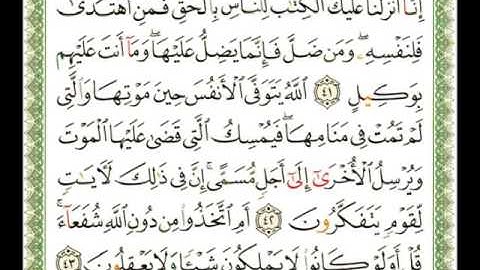 إِنَّا أَنزَلْنَا عَلَيْكَ الْكِتَٰبَ لِلنَّاسِ بِالْحَقِّ فَمَنِ اهْتَدَىٰ
فَلِنَفْسِهِۦ وَمَن ضَلَّ فَإِنَّمَا يَضِلُّ عَلَيْهَا وَمَآ أَنتَ عَلَيْهِم
بِوَكِيلٍ ٤١ اللَّهُ يَتَوَفَّى الْأَنفُسَ حِينَ مَوْتِهَا وَالَّتِي
لَمْ تَمُتْ فِي مَنَامِهَا فَيُمْسِكُ الَّتِي قَضَىٰ عَلَيْهَا الْمَوْتَ
وَيُرْسِلُ الْأُخْرَىٰٓ إِلَىٰٓ أَجَلٍ مُّسَمًّى إِنَّ فِي ذَٰلِكَ لَآيَاتٍ
لِّقَوْمٍ يَتَفَكَّرُونَ ٤٢ أَمِ اتَّخَذُوا مِن دُونِ اللَّهِ شُفَعَآءَ
قُلْ أَوَلَوْ كَانُوا لَا يَمْلِكُونَ شَيْـًٔا وَلَا يَعْقِلُونَ ٤٣